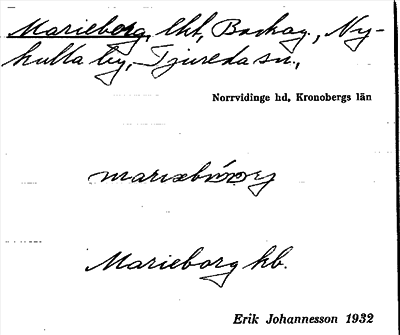 Marieberg, lht, Backag., Ny-
hulta by, Tjureda sn.,
Norrvidinge hd, Kronobergs län
Marieborg hb.
Erik Johannesson 1932